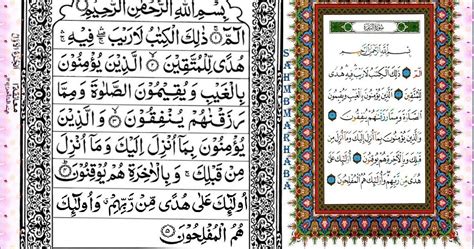 بِسْمِ اللهِ الرَّحْمٰنِ الرَّحِيْمِ
الٓمّٓ ۚ ذٰلِكَ الْكِتٰبُ لَا رَيْبَ ۛ فِيْهِ ۛ
هُدًى لِّلْمُتَّقِيْنَ ۙ الَّذِيْنَ يُؤْمِنُوْنَ
بِالْغَيْبِ وَيُقِيْمُوْنَ الصَّلٰوةَ وَمِمَّا
رَزَقْنٰهُمْ يُنْفِقُوْنَ ۙ وَالَّذِيْنَ
يُؤْمِنُوْنَ بِمَآ اُنْزِلَ اِلَيْكَ وَمَآ اُنْزِلَ
مِنْ قَبْلِكَ ۚ وَبِالْاٰخِرَةِ هُمْ يُوْقِنُوْنَ
اُولٰٓئِكَ عَلٰى هُدًى مِّنْ رَّبِّهِمْ ۙ وَاُولٰٓئِكَ
هُمُ الْمُفْلِحُوْنَ ۵
SAHMBMARKHABA
بِسْمِ اللَّهِ الرَّحْمَٰنِ الرَّحِيمِ
الٓمٓ ذَٰلِكَ الْكِتَابُ لَا رَيْبَ فِيهِ هُدًى
لِّلْمُتَّقِينَ الَّذِينَ يُؤْمِنُونَ بِالْغَيْبِ وَيُقِيمُونَ
الصَّلَاةَ وَمِمَّا رَزَقْنَاهُمْ يُنفِقُونَ
وَالَّذِينَ يُؤْمِنُونَ بِمَا أُنزِلَ إِلَيْكَ وَمَا أُنزِلَ
مِن قَبْلِكَ وَبِالْآخِرَةِ هُمْ يُوقِنُونَ أُولَٰئِكَ عَلَىٰ
هُدًى مِّن رَّبِّهِمْ وَأُولَٰئِكَ هُمُ الْمُفْلِحُونَ